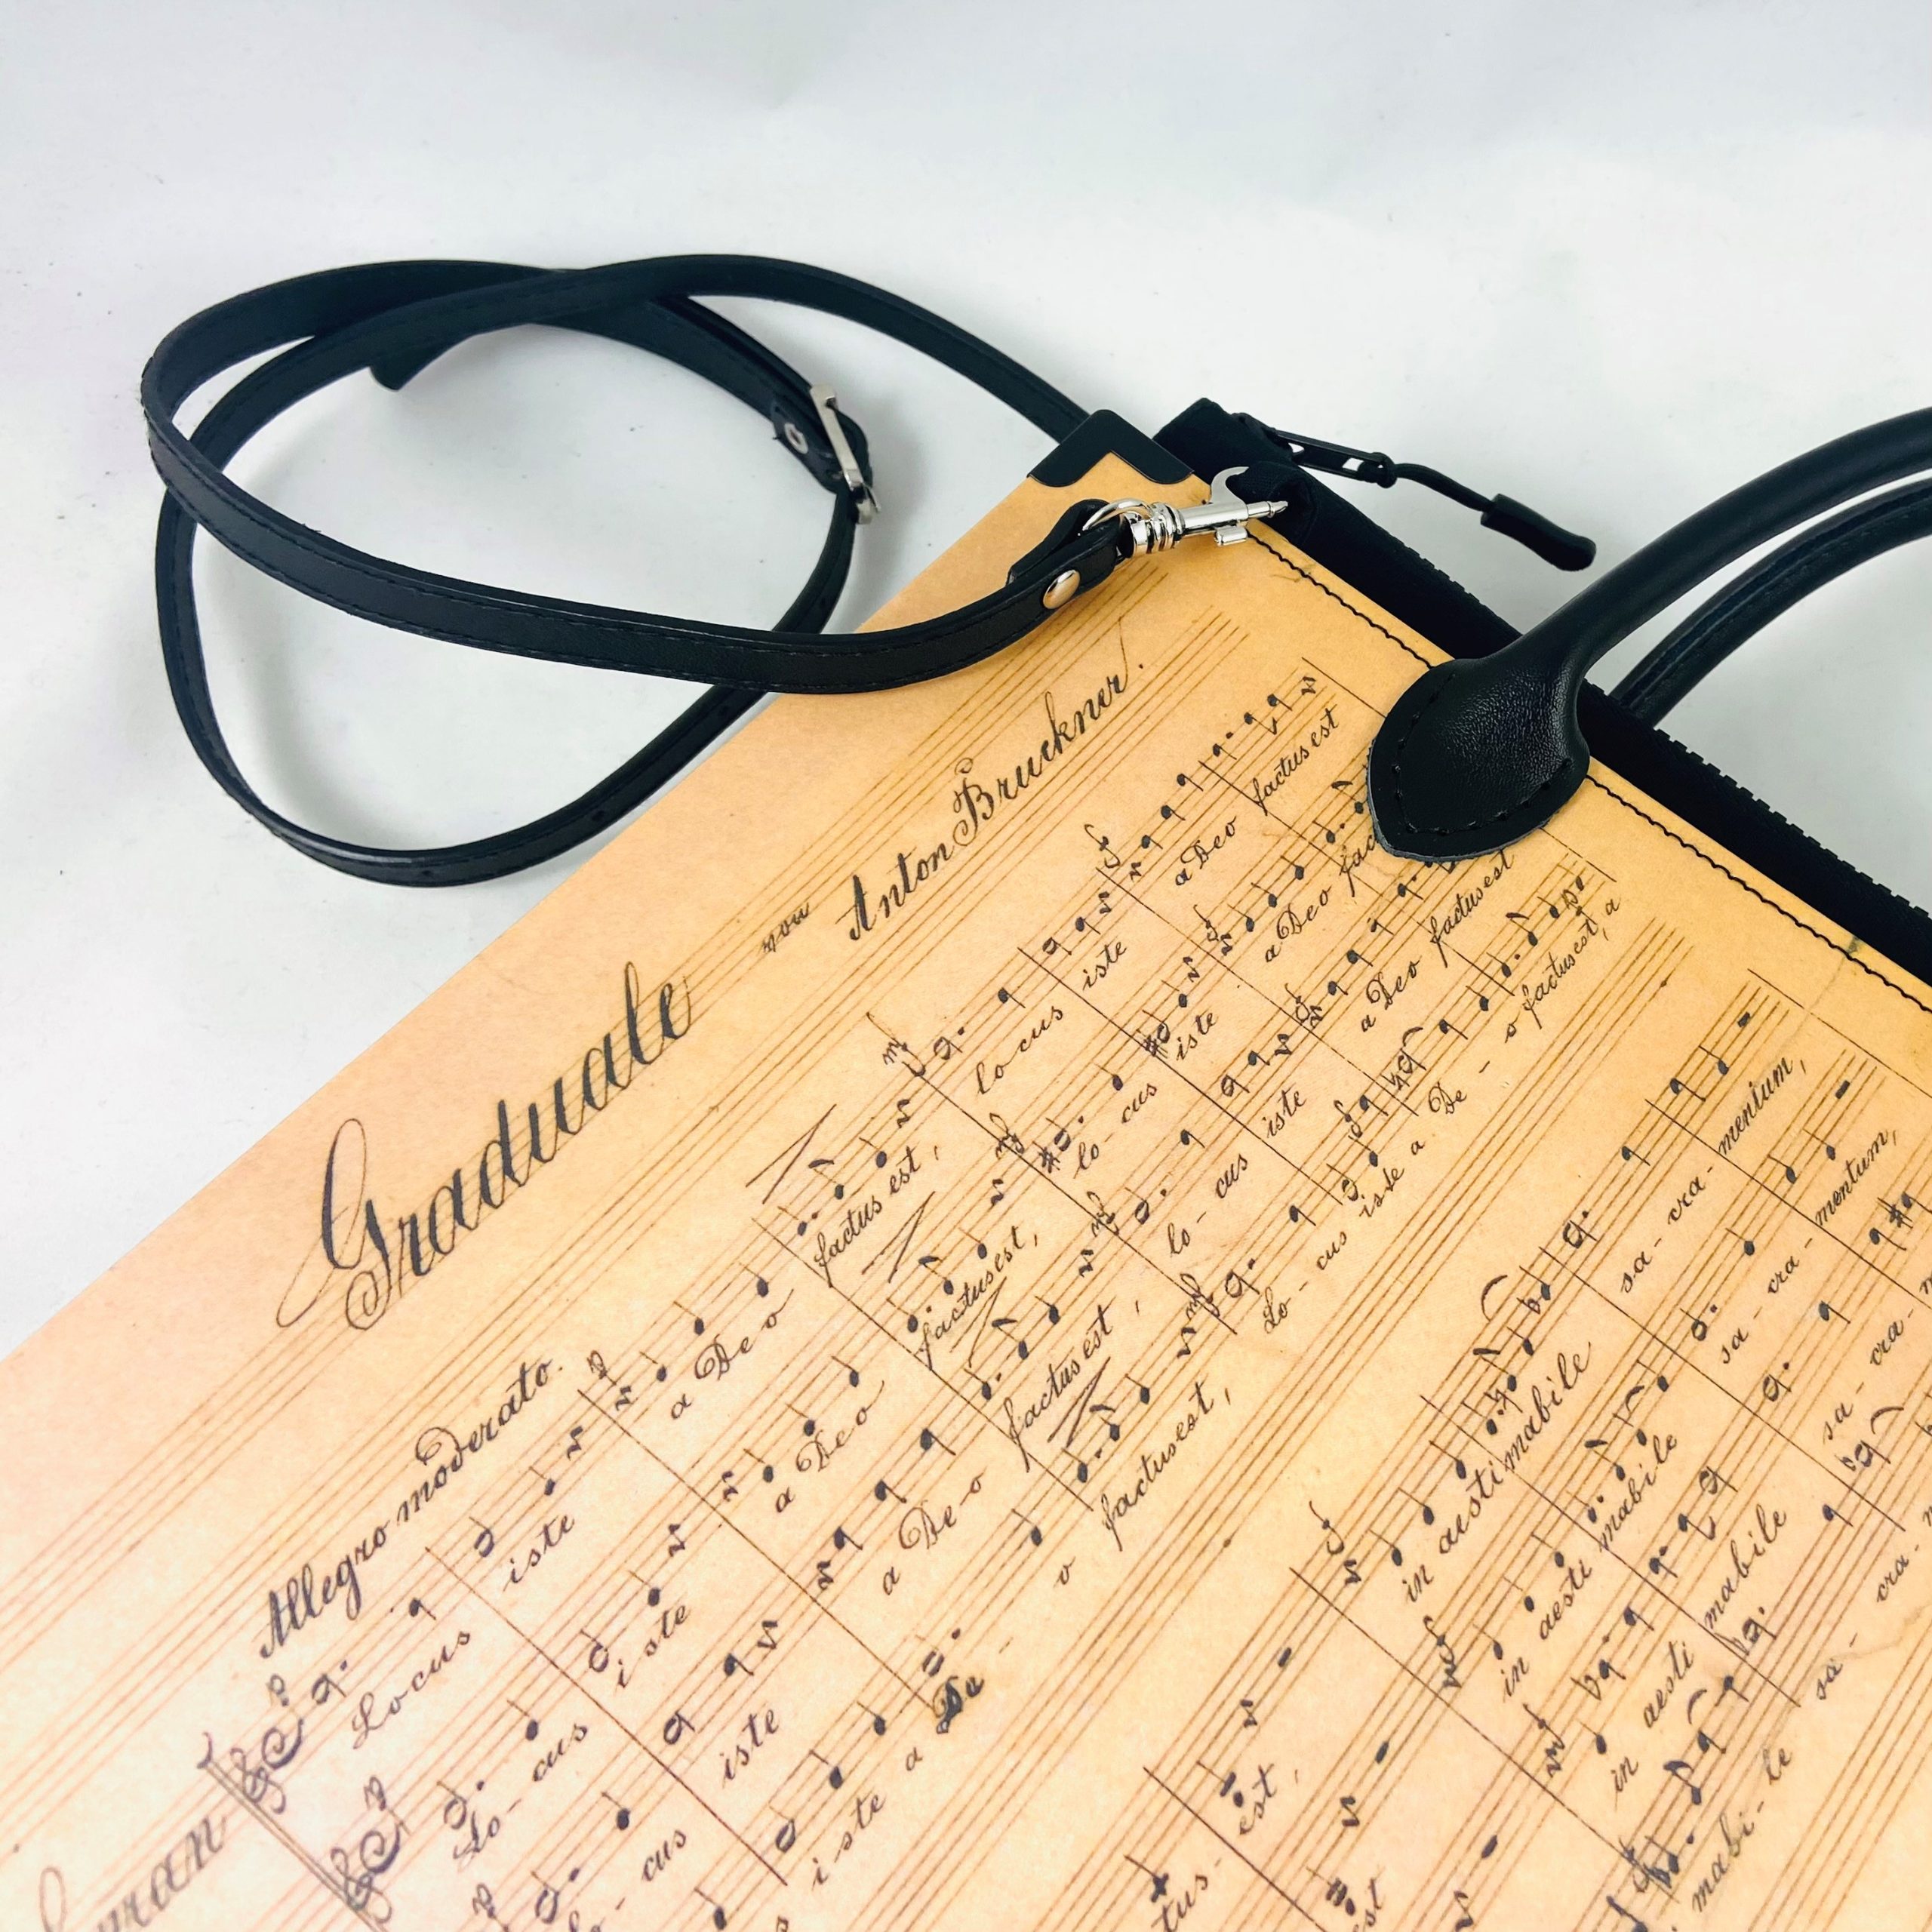 Graduale von Anton Bruckner.
Allegro moderato.
Locus iste a Deo factus est, locus iste a Deo factus est
Lo- cus iste a Deo factus est, lo- cus iste a Deo fac
lo- cus iste a De-o factus est, lo- cus iste a Deo factus est
iste a De- o factus est, Lo- cus iste a De- o factus est, a
est, in aestimabile sa- cra- mentum,
in aesti mabile sa- cra- mentum,
tus- est in aesti mabile sa- cra-
in aesti mabi- le sa- cra-